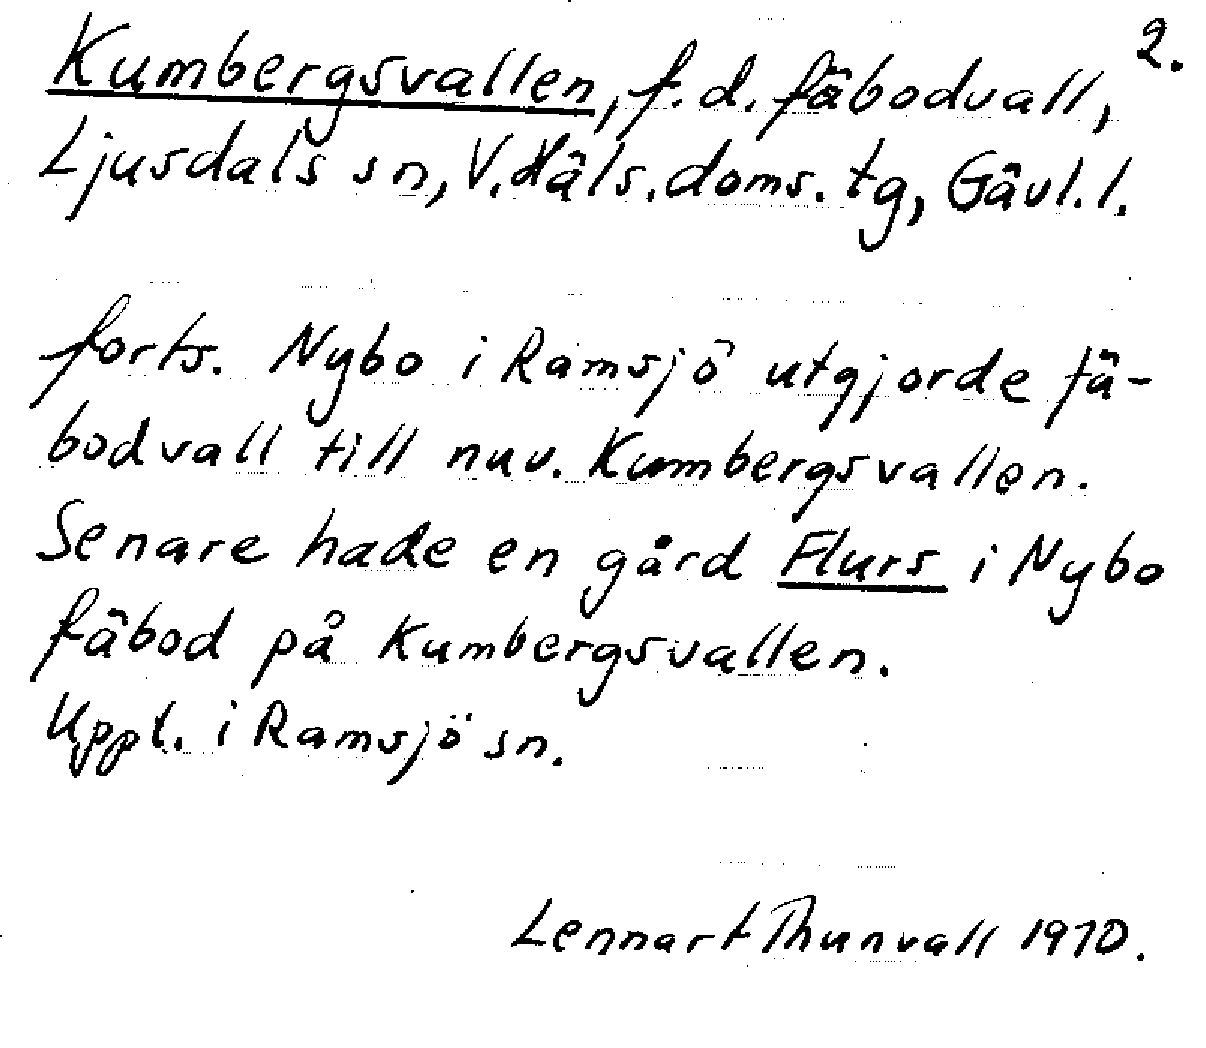 2.
Kumbergsvallen, f.d. fäbodvall,
Ljusdals sn, V. Häls. doms. tg, Gävl. l.
forts. Nybo i Ramsjö utgjorde fä-
bodvall till nuv. Kumbergsvallen.
Senare hade en gård Flurs i Nybo
fäbod på Kumbergsvallen.
Uppt. i Ramsjö sn.
Lennart Thunvall 1970.